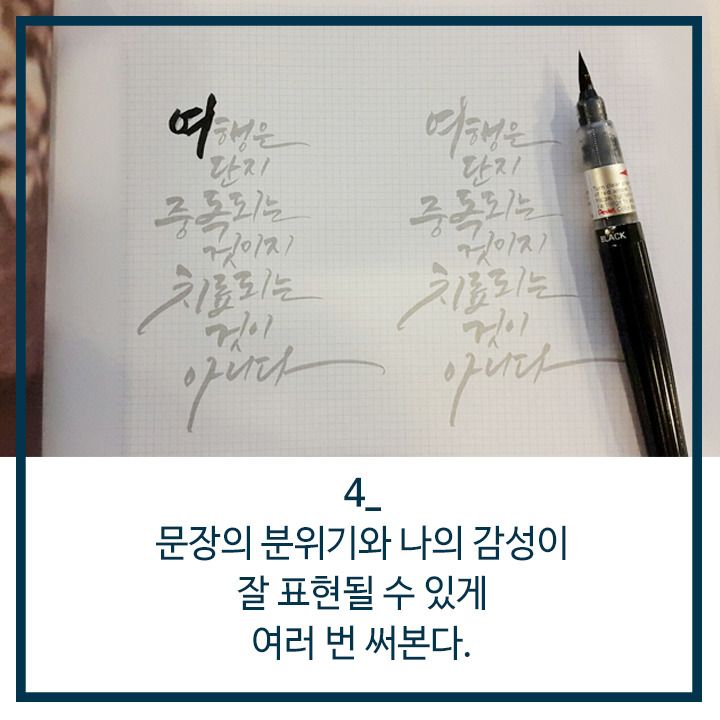 여행은
단지
중독되는
것이지
치료되는
것이
아니다
여행은
단지
중독되는
것이지
치료되는
것이
아니다
Pentel
BLACK
4_
문장의 분위기와 나의 감성이
잘 표현될 수 있게
여러 번 써본다.